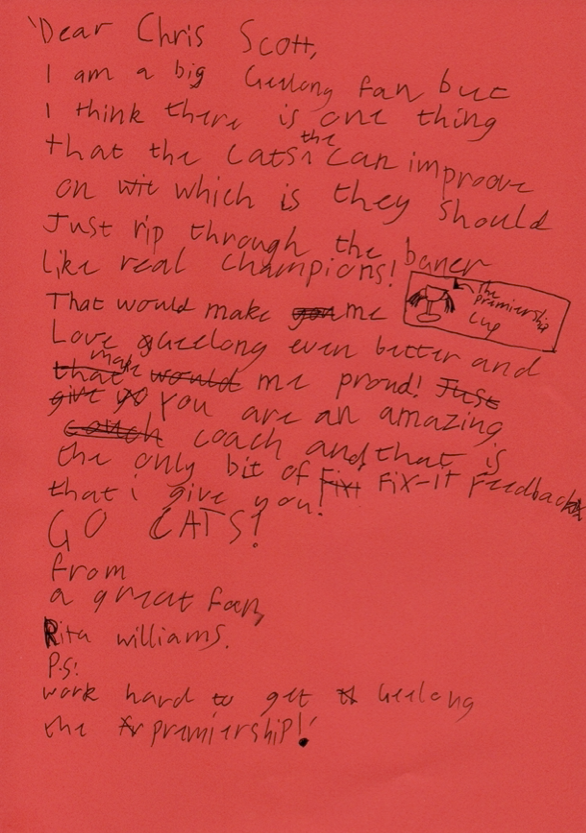 Dear Chris Scott,
I am a big Geelong fan but
I think there is one thing
that the Cats the can improove
on wit which is they should
Just rip through the baner
like real champions!
The Premiership Cup
That would make you me
Love Geelong even better and
that make would me proud! Just
give yo You are an amazing
couch coach and that is
the only bit of Fixi Fix-it Feedback
that i give you!
GO CATS!
from
a great fan,
Rita Williams.
P.S:
work hard to get Geelong
the premiership!